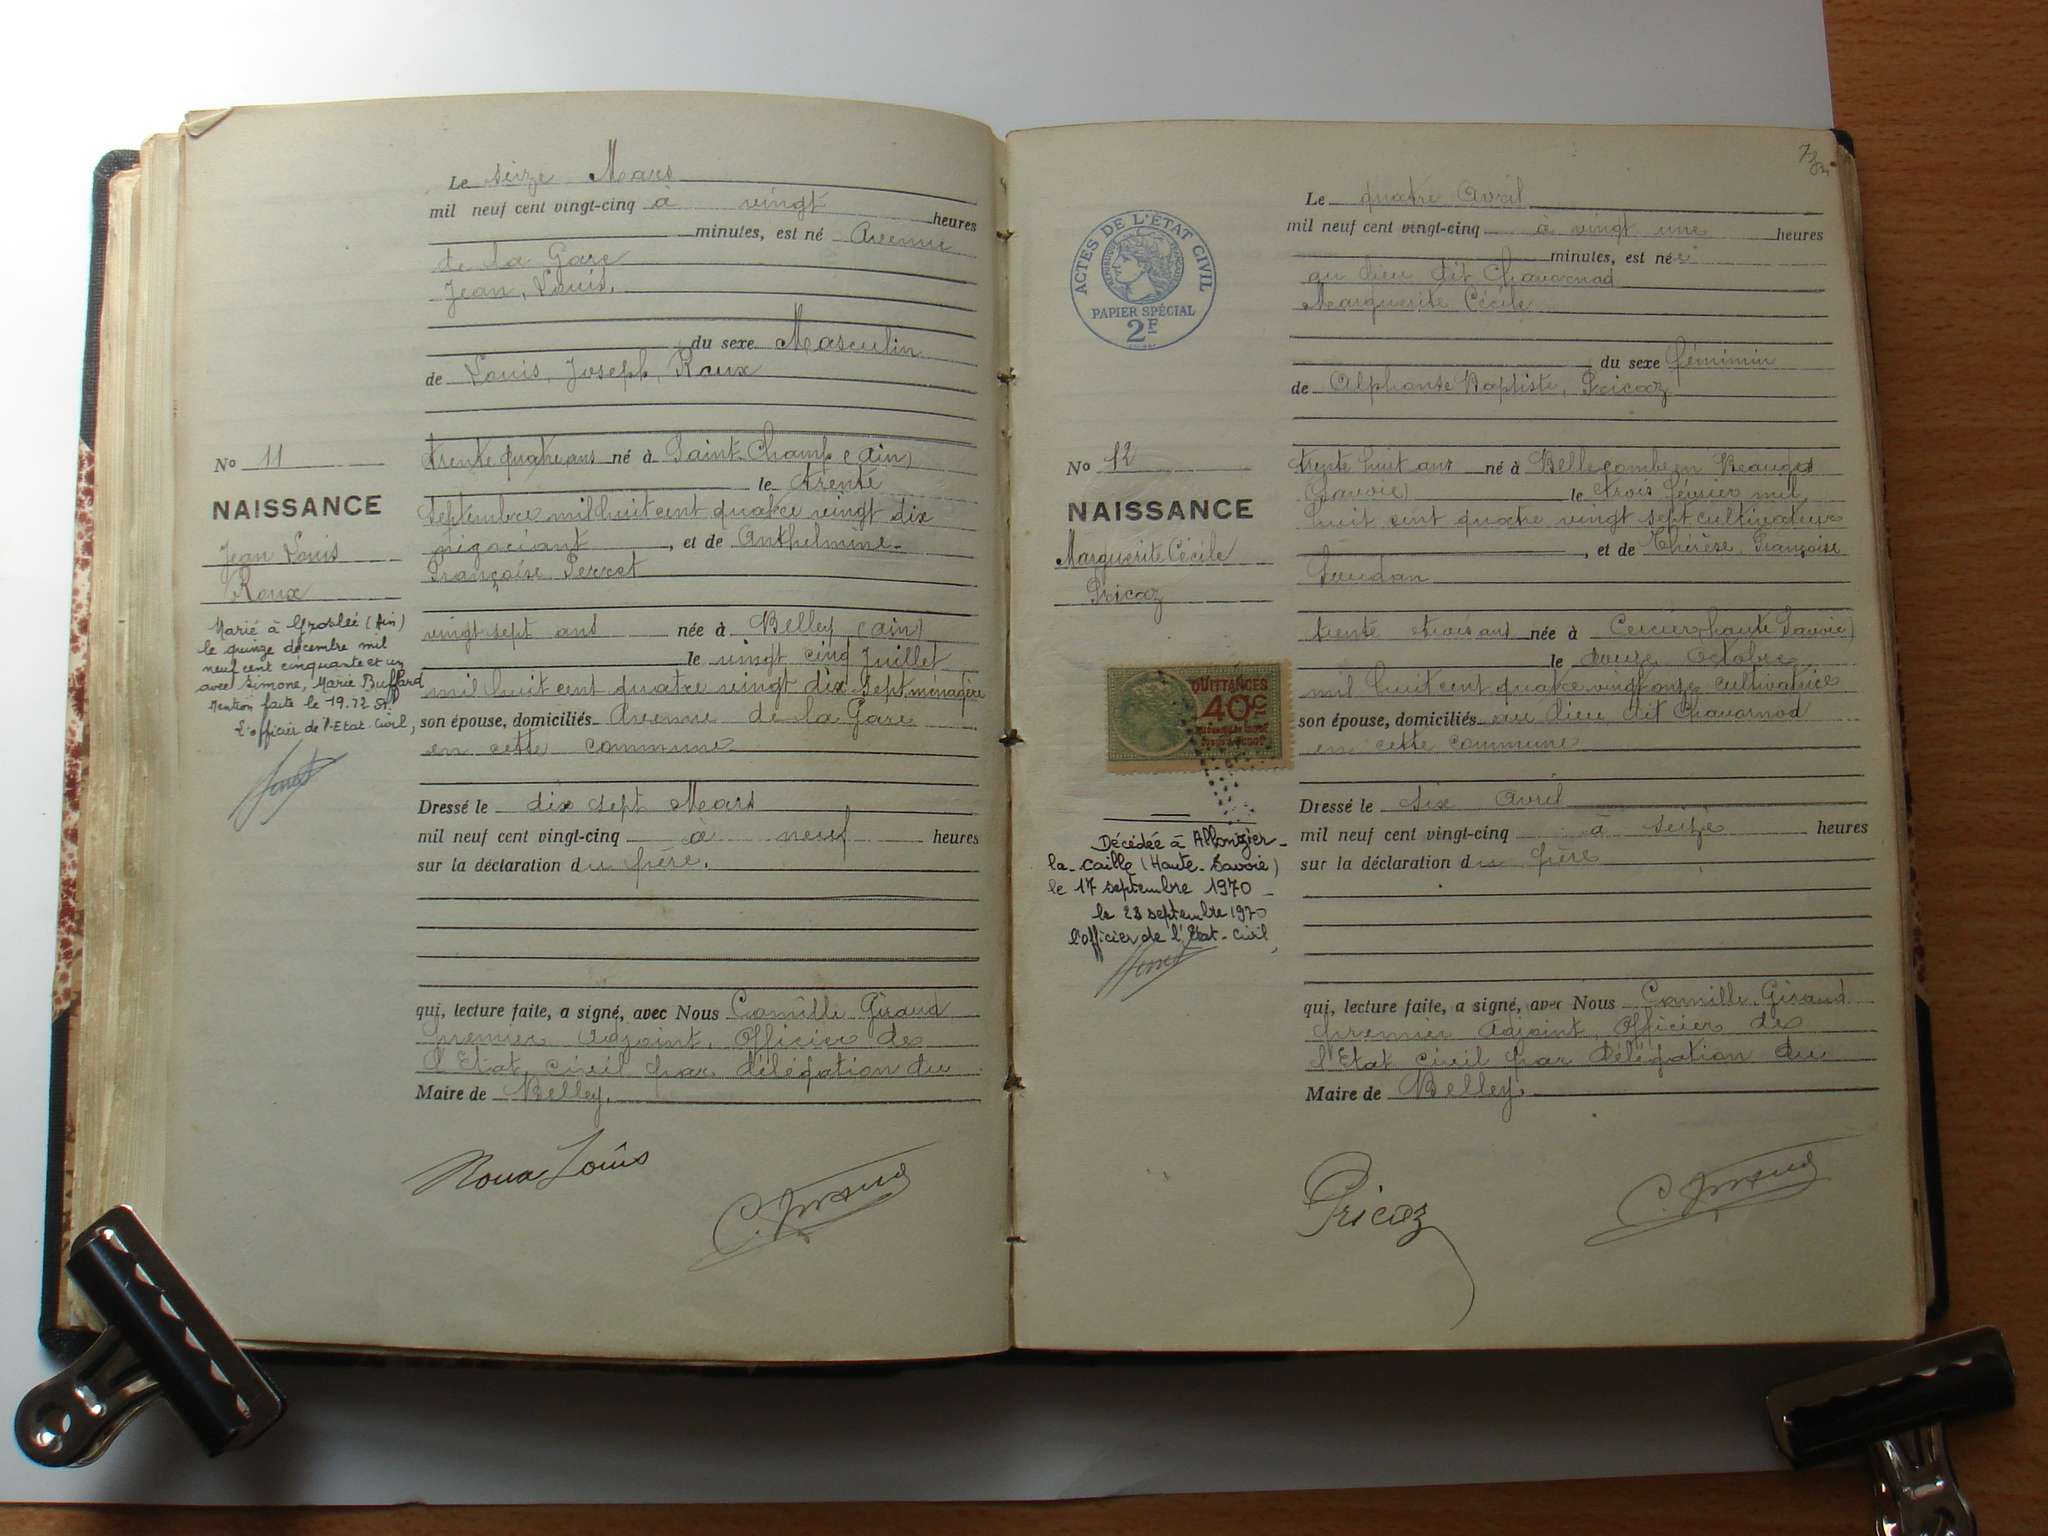 Le seize Mars
mil neuf cent vingt-cinq à vingt heures
minutes, est né Avenue
de la Gare
Jean, Louis,
du sexe Masculin
de Louis, Joseph, Roux
No 11
NAISSANCE
Jean Louis
Roux
Marié à Groslée (Ain)
le quinze décembre mil
neuf cent cinquante et un
avec Simone, Marie Buffard
Mention faite le 19.12.51
L'officier de l'Etat-Civil,
trente quatre ans né à Saint-Champ (Ain)
le trente
septembre mil huit cent quatre vingt dix
négociant, et de Anthelmine-
Françoise Perret
vingt sept ans née à Belley (Ain)
le vingt cinq Juillet
mil huit cent quatre vingt dix sept ménagère
son épouse, domiciliés Avenue de la Gare
en cette commune
Dressé le dix sept Mars
mil neuf cent vingt-cinq à neuf heures
sur la déclaration du père.
qui, lecture faite, a signé, avec Nous Camille Giraud
premier Adjoint, Officier de
l'Etat civil par délégation du
Maire de Belley.
Roux Louis
C. Giraud
7
ACTES DE L'ÉTAT CIVIL
RÉPUBLIQUE FRANÇAISE
PAPIER SPÉCIAL
2F
Le quatre Avril
mil neuf cent vingt-cinq à vingt une heures
minutes, est née
au lieu dit Chavornod
Marguerite Cécile
du sexe féminin
de Alphonse Baptiste, Pricaz
No 12
NAISSANCE
Marguerite Cécile
Pricaz
QUITTANCES
40c
Décédée à Allonzier-
la-Caille (Haute-Savoie)
le 17 septembre 1970
le 23 septembre 1970
l'officier de l'Etat-Civil,
trente huit ans né à Bellecombe en Beauges
(Savoie) le trois février mil
huit cent quatre vingt sept cultivateur
, et de Thérèse, Françoise
Soudan
trente trois ans née à Cercier (haute Savoie)
le douze Octobre
mil huit cent quatre vingt onze cultivatrice
son épouse, domiciliés au lieu dit Chavornod
en cette commune
Dressé le six Avril
mil neuf cent vingt-cinq à seize heures
sur la déclaration du père
qui, lecture faite, a signé, avec Nous Camille Giraud
premier Adjoint, Officier de
l'Etat civil par délégation du
Maire de Belley.
Pricaz
C. Giraud